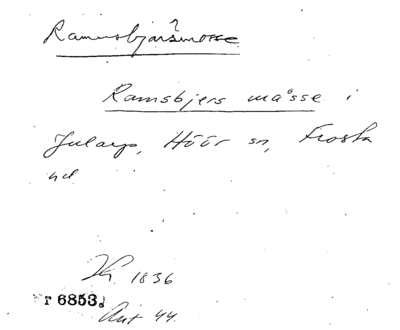 ?
Ramsbjärsmosse
Ramsbjers måsse i
Jularp, Höör sn, Frosta
hd
1836
r 6853.
Ant 44.